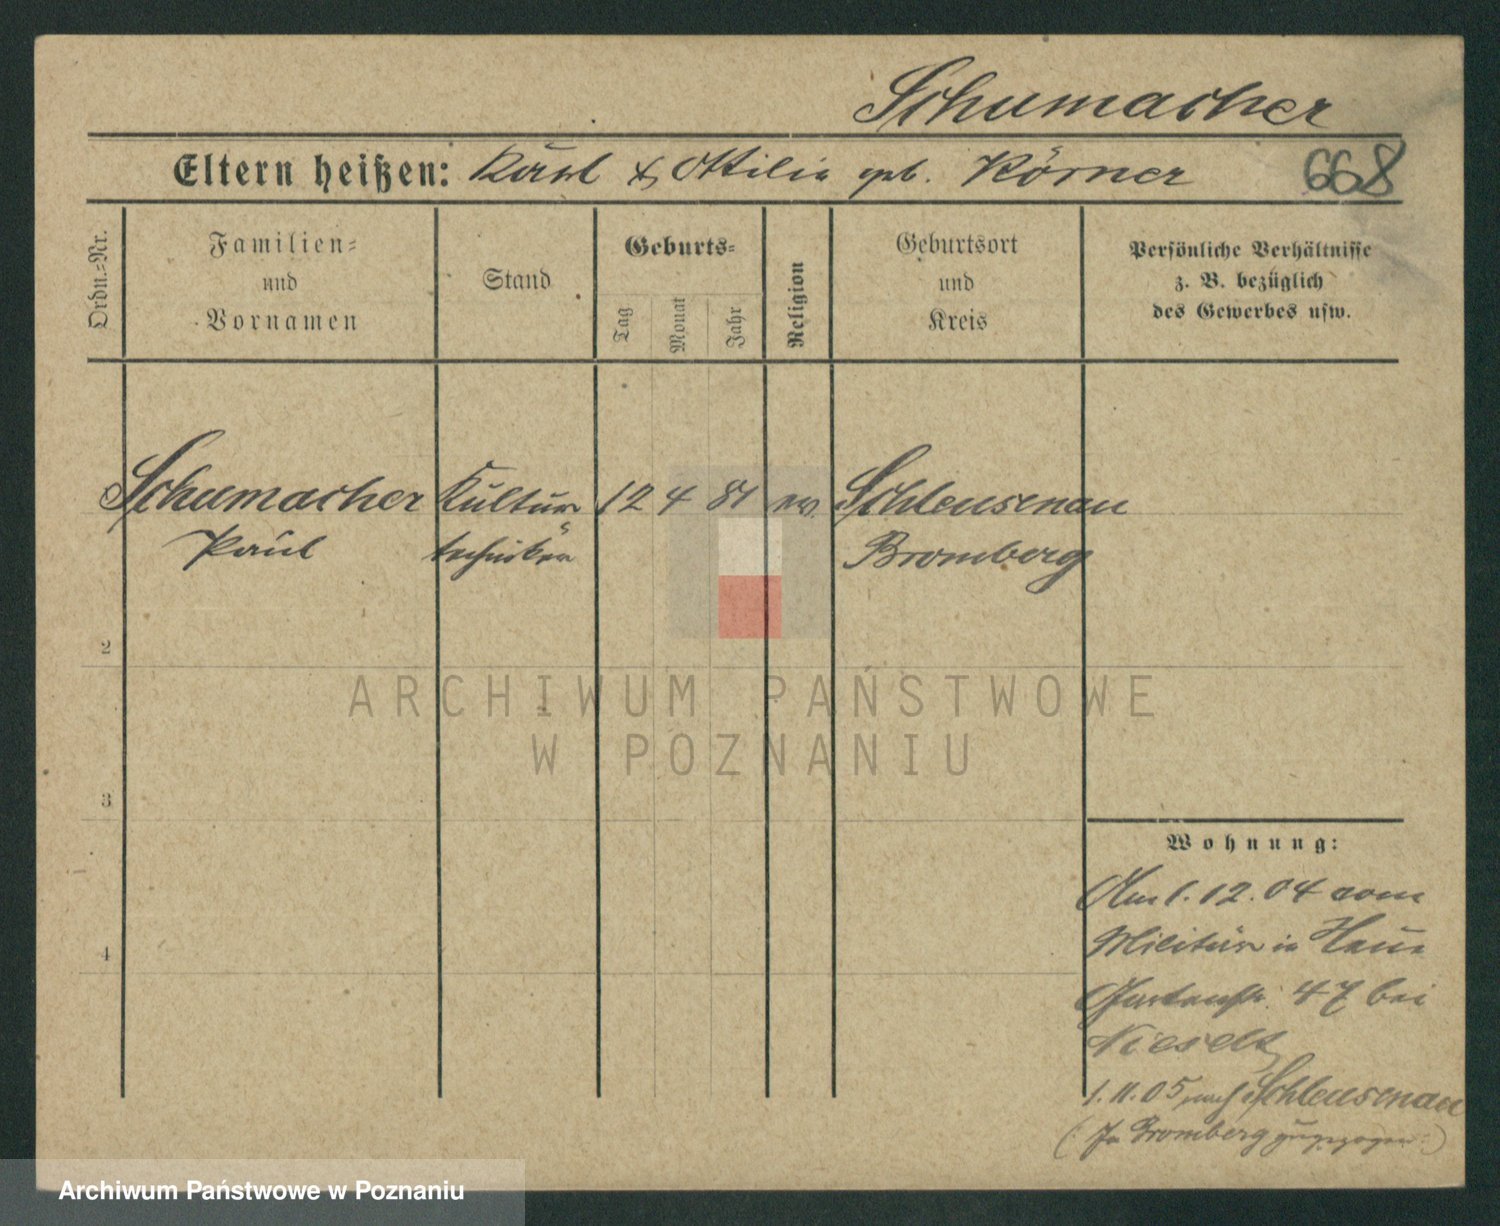 Schumacher
Eltern heißen: Karl & Ottilie geb. Körner 668
Ordn.-Nr.
Familien-
und
Vornamen
Stand
Geburts-
Tag
Monat
Jahr
Religion
Geburtsort
und
Kreis
Persönliche Verhältnisse
z. B. bezüglich
des Gewerbes usw.
Schumacher Kultur 12 4 81 ev. Schleusenau
Paul techniker Bromberg
2
3
4
Wohnung:
Am 1. 12. 04 vom
Militär in
Gartenstr. 47 bei
1. 11. 05 nach Schleusenau
(In Bromberg zugezogen.)
ARCHIWUM PAŃSTWOWE
W POZNANIU
Archiwum Państwowe w Poznaniu